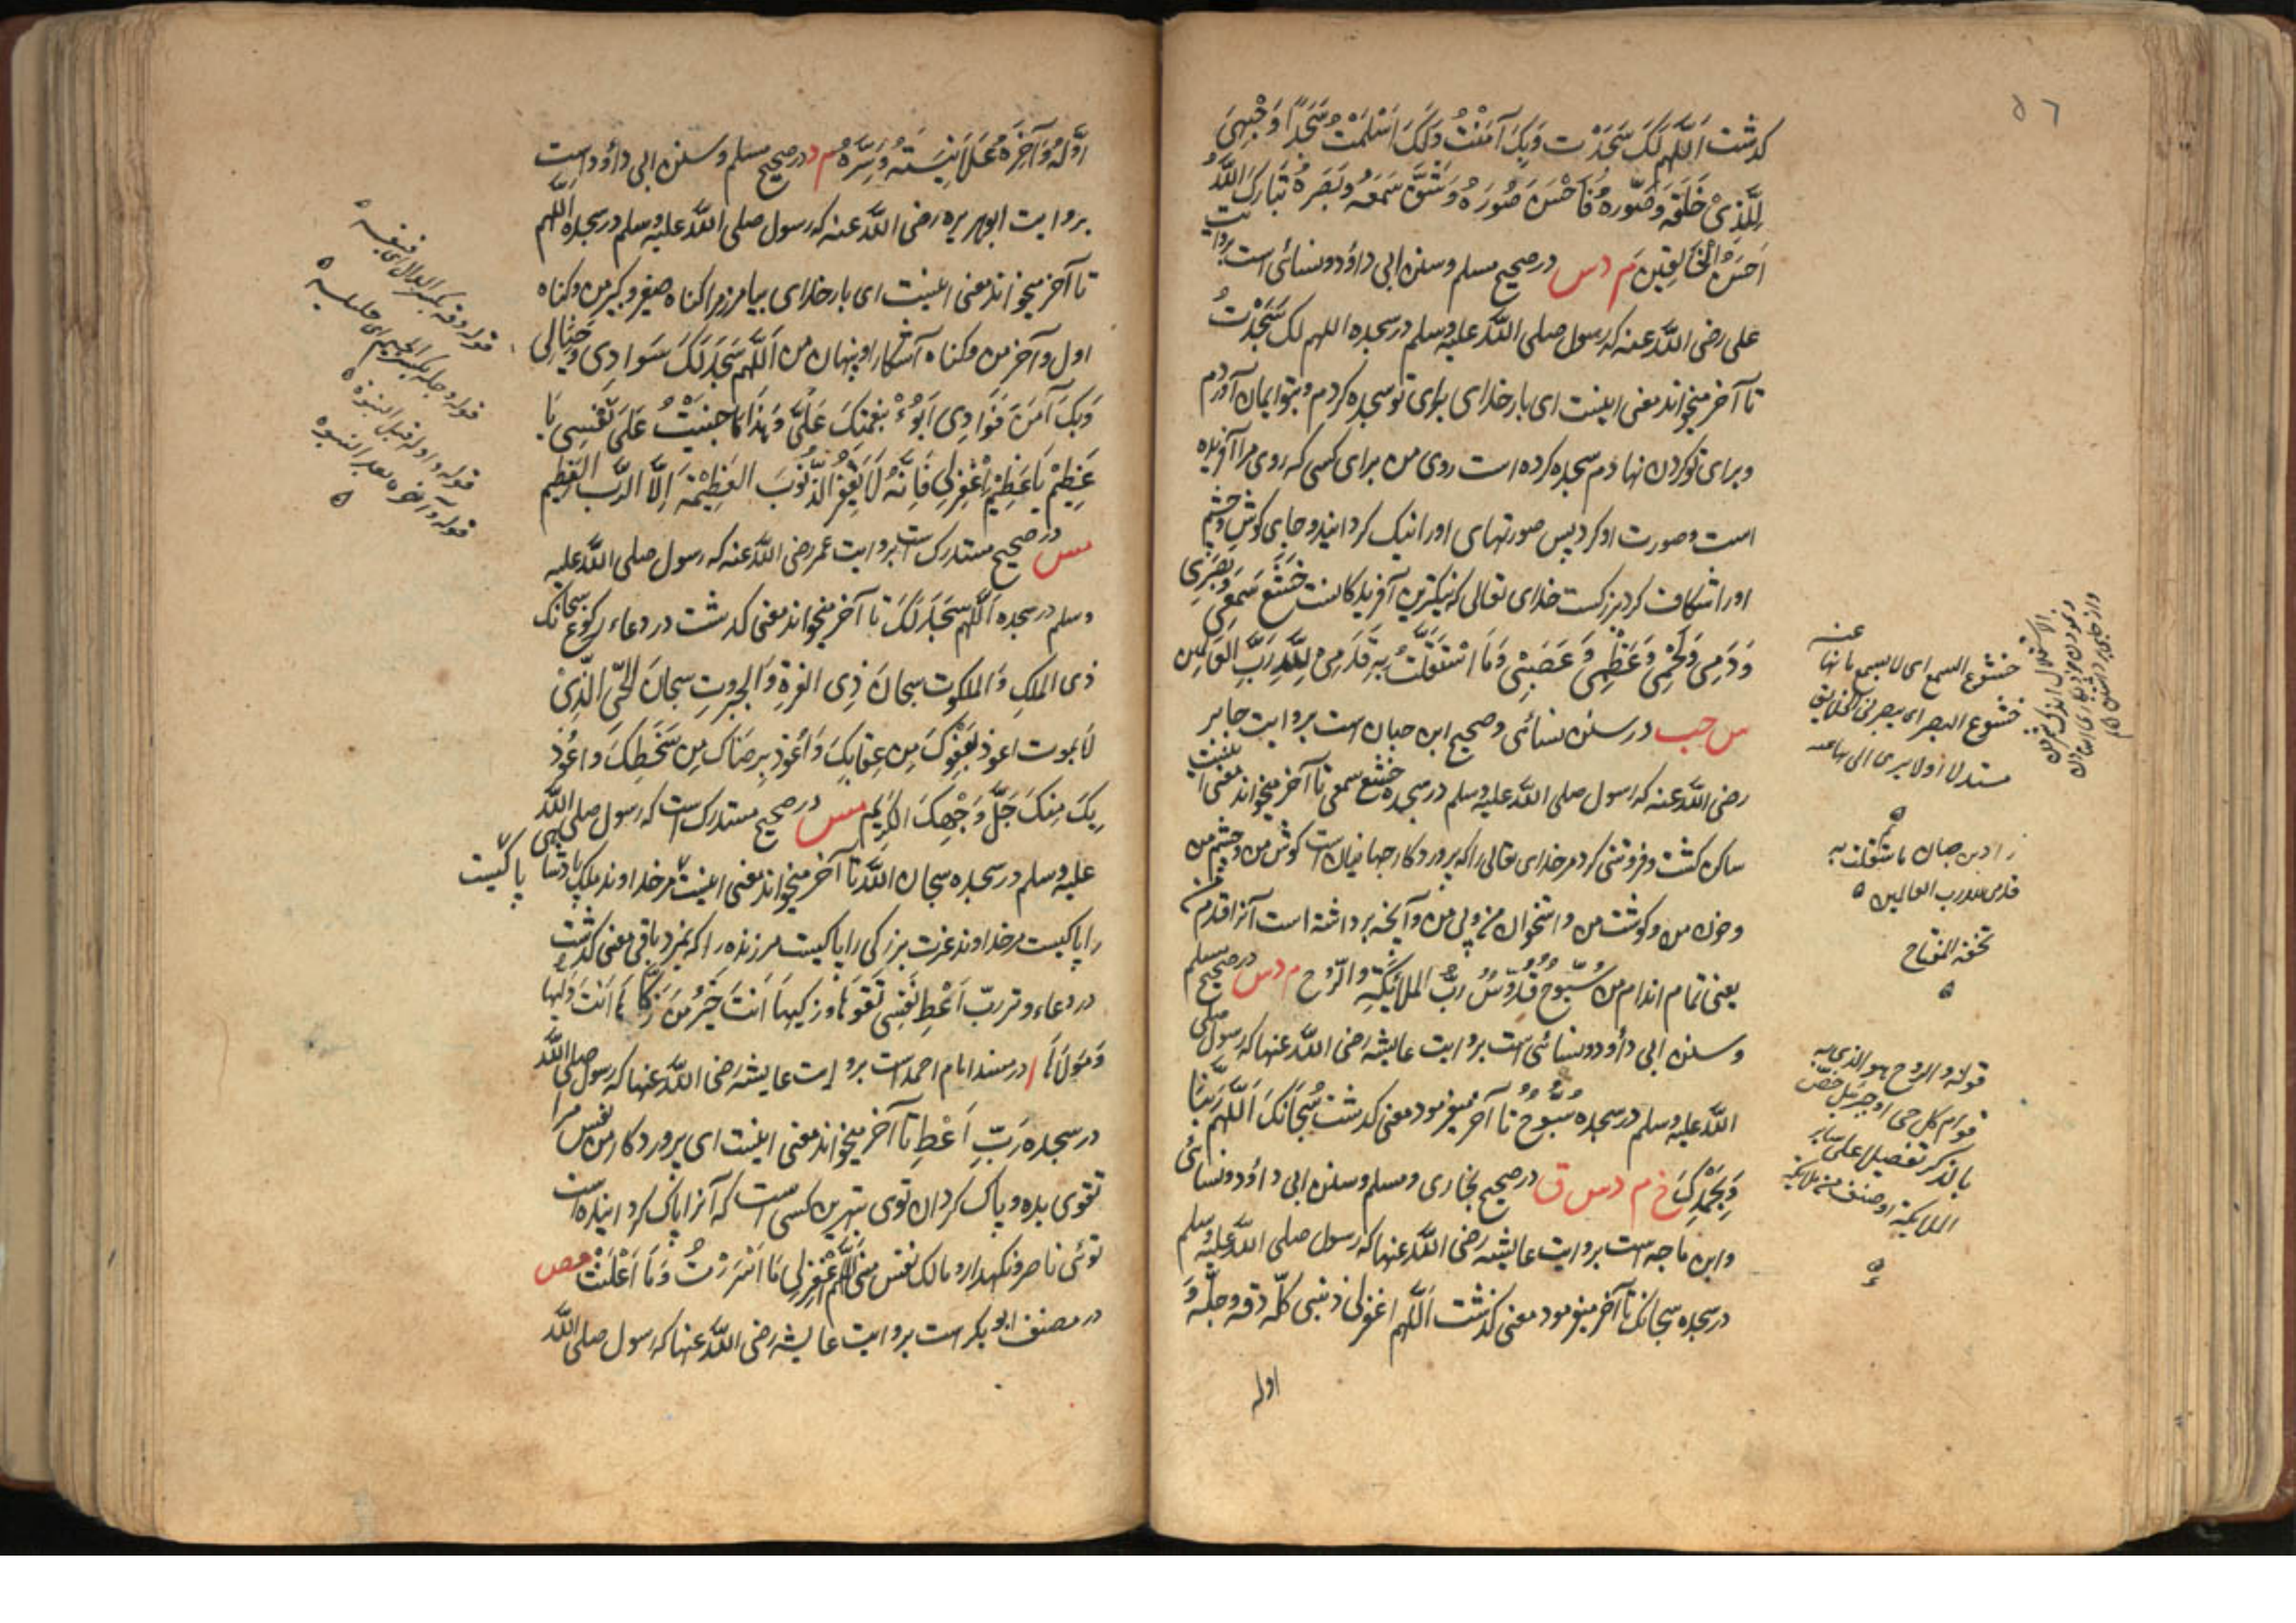 ٥٦
كدشت اَللّٰهم لَكَ سَجَدْت وَبِكَ آمَنْتُ وَلَكَ اَسْلَمْتُ سَجَدَ وَجْهِىَ
لِلَّذِىْ خَلَقَه وَصَوَّرَهُ فَاَحْسَنَ صُوَرَهُ وَشَقَّ سَمْعَهُ وَبَصَرَهُ تَبَارَكَ اللّٰهُ
اَحْسَنُ الْخَالِقِيْنَ م د س در صحيح مسلم وسنن ابى داؤد ونسائى است بروايت
على رضى اللّٰه عنه كه رسول صلى اللّٰه عليه وسلم در سجده اللهم لك سَجَدْتُ
تا آخر ميخواند معنى اينست اى بار خداى براى تو سجده كردم وبتو ايمان آوردم
وبراى تو كردن نهادم سجده كرده است روى من براى كسى كه روى مرا آفريده
است وصورت او كرد پس صورتهاى او را نيك كردانيد وجاى كوش وچشم
او را شكافت كرد بزركست خداى تعالى كه نيكترين آفريدكانست خَشَعَ سَمْعِى وَبَصَرِى
وَدَمِى وَلَحْمِى وَعَظْمِى وَعَصَبِىْ وَمَا اسْتَقَلَّتْ بِهِ قَدَمِىْ لِلّٰهِ رَبِّ العَالَمِين
س حب در سنن نسائى وصحيح ابن حبان است بروايت جابر
رضى اللّٰه عنه كه رسول صلى اللّٰه عليه وسلم در سجده خشع سمعى تا آخر ميخواند معنى اينست
ساكن كشت وفروتنى كرد مر خداى تعالى را كه پروردكار جهانيان است كوش من وچشم من
وخون من وكوشت من واستخوان من وپى من وآنچه برداشته است آنرا قدم من
يعنى تمام اندام من سُبُّوحٌ قُدُّوسٌ رَبُّ الملائِكَةِ والرُّوحِ م د س در صحيح مسلم
وسنن ابى داؤد ونسائى است بروايت عايشه رضى اللّٰه عنها كه رسول صلى
اللّٰه عليه وسلم در سجده سُبُّوحٌ تا آخر ميفرمود معنى كدشت سُبْحَانَكَ اَللّٰهُمَّ رَبَّنَا
وَبِحَمْدِكَ خ م د س ق در صحيح بخارى ومسلم وسنن ابى داؤد ونسائى
وابن ماجه است بروايت عايشه رضى اللّٰه عنها كه رسول صلى اللّٰه عليه وسلم
در سجده سبحانك تا آخر ميفرمود معنى كذشت اَللّٰهم اغفرلى ذنبى كلّه دقه وجلّه وَ
اوله
خشوع السمع اى لا يسمع ما نها عنه
خشوع البصر اى
تحفة المفتاح
قوله والروح هو الذى به
قوام كل حى او جبرئيل خصّ
بالذكر تفضيلا على ساير
الملايكة او صنف من ملايكه
اَوَّلَهُ وَآخِرَهُ عَلَانِيَتَهُ وَسِرَّهُ م د در صحيح مسلم وسنن ابى داؤد است
بروايت ابوهريره رضى اللّٰه عنه كه رسول صلى اللّٰه عليه وسلم در سجده اللّٰهم
تا آخر ميخواند معنى اينست اى بار خداى بيامرز مرا كناه صغير وكبير من وكناه
اول وآخر من وكناه آشكارا وپنهان من اَللّٰهم سَجَدَ لَكَ سَوَادِى وَخَيَالِى
وَبِكَ آمَنَ فُوَادِى اَبُوْءُ بِنِعْمَتِكَ عَلَىَّ وَهٰذَا مَا جَنَيْتُ عَلَى نَفْسِى يَا
عَظِيْمُ يَا عَظِيْمُ اِغْفِرْلِى فَاِنَّهُ لَا يَغْفِرُ الذُّنُوْبَ العَظِيْمَةَ اِلَّا الرَّبُّ العَظِيْمُ
مس در صحيح مستدرك است بروايت عمر رضى اللّٰه عنه كه رسول صلى اللّٰه عليه
وسلم در سجده اَللّٰهم سَجَدَ لَكَ تا آخر ميخواند معنى كدشت در دعاء ركوع سبحانك
ذى الملكِ وَالملكوت سبحانَ ذِى العزةِ وَالجبروتِ سبحانَ الحَىِّ الَّذِىْ
لَا يموت اعوذ بِعَفْوِكَ مِن عِقَابِكَ وَاَعُوْذُ بِرِضَاكَ مِن سَخَطِكَ وَاَعُوْذُ
بِكَ مِنْكَ جَلَّ وَجْهِكَ الكريم مس در صحيح مستدرك است كه رسول صلى اللّٰه
عليه وسلم در سجده سبحان اللّٰه تا آخر ميخواند معنى اينست مر خداوند ملك پادشاهى پاكيست
را پاكيست مر خداوند عزت بزركى را پاكيست مر زنده را كه نميرد باقى معنى كدشت
در دعاء وتر ربّ اَعْطِ نَفْسِى تَقْوٰهَا وزكّيهَا اَنْتَ خَيْرُ مَنْ زَكَّاهَا اَنْتَ وَلِيُّهَا
وَمَوْلَاهَا ا در مسند امام احمد است بروايت عايشه رضى اللّٰه عنها كه رسول صلى اللّٰه
در سجده رَبِّ اَعْطِ تا آخر ميخواند معنى اينست اى پروردكار من نفس مرا
تقوى بده وپاك كردان توى بهترين كسى است كه آنرا پاك كردانيده است
توئى ناصر ونكهدار ومالك نفس من اللّٰهم اغْفِرْلِى مَا اَسْرَرْتُ وَمَا اَعْلَنْتُ مص
در مصنف ابو بكر است بروايت عايشه رضى اللّٰه عنها كه رسول صلى اللّٰه
قوله دقه بكسر الدال اى
قوله وجله بكسر الجيم اى جليله
قوله واوله قبل النبوة
قوله وآخره بعد النبوة